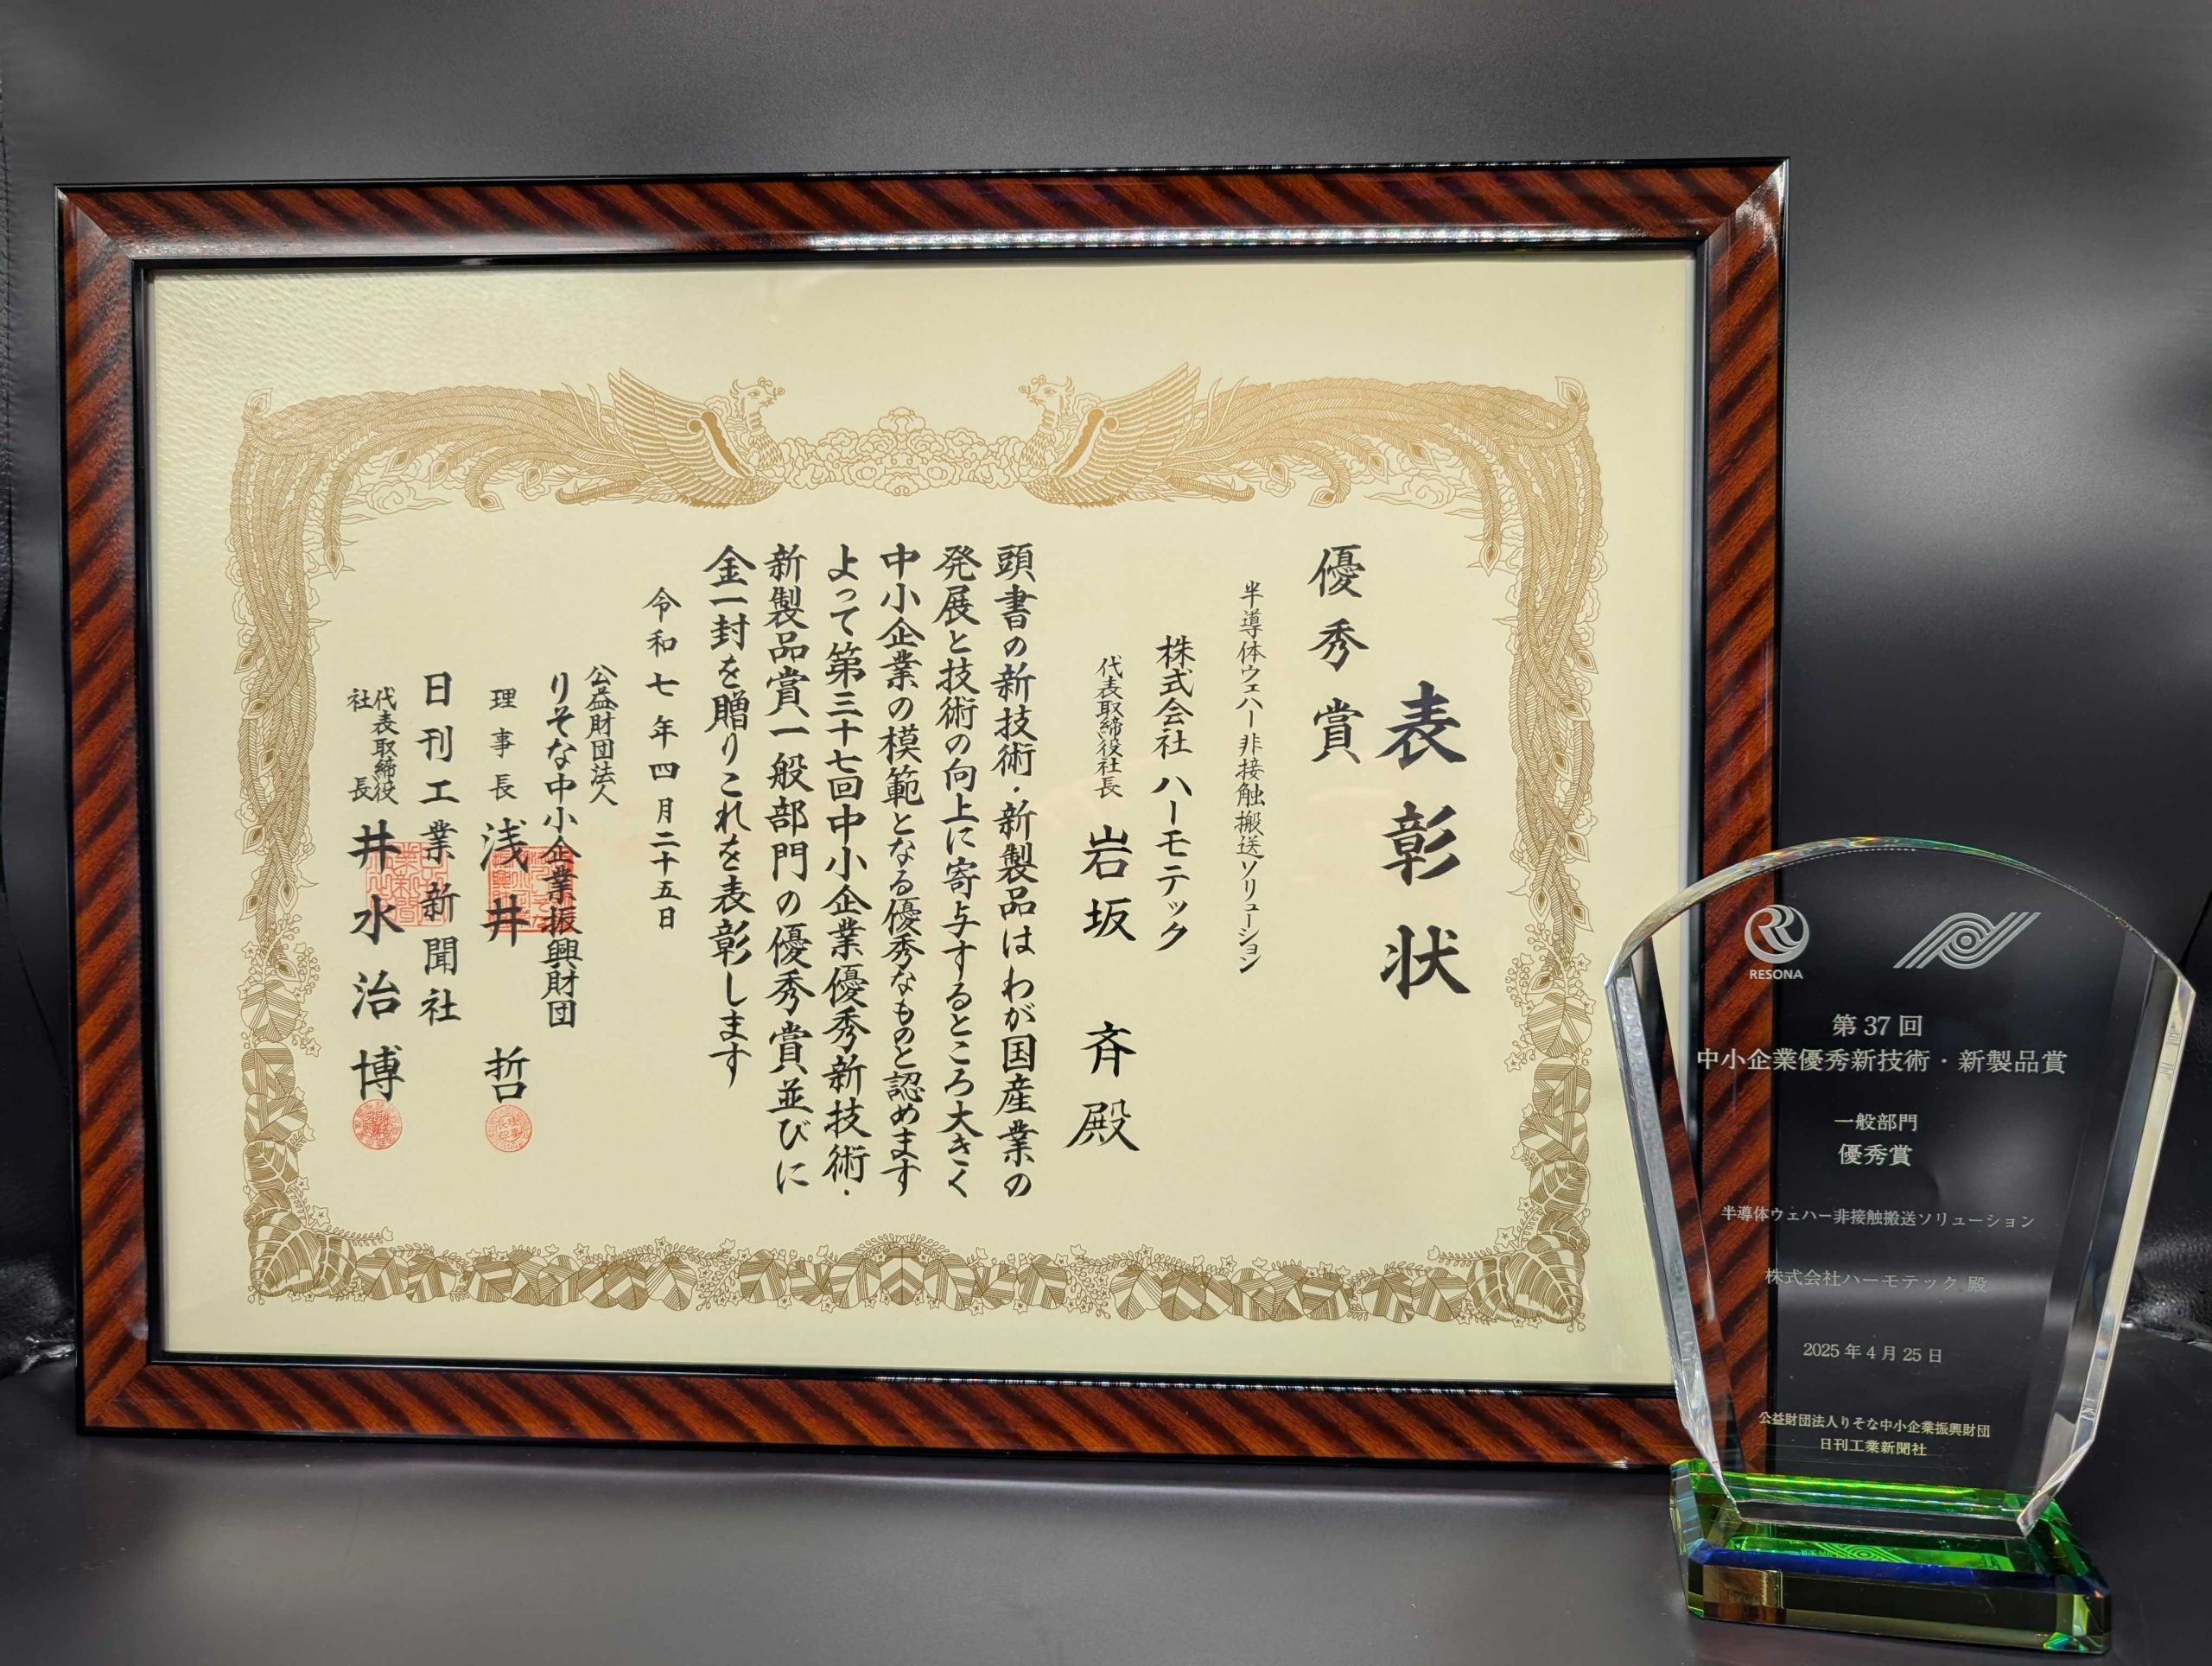 表彰状
優秀賞
半導体ウェハー非接触搬送ソリューション
株式会社 ハーモテック
代表取締役社長 岩坂 斉 殿
頭書の新技術・新製品はわが国産業の
発展と技術の向上に寄与するところ大きく
中小企業の模範となる優秀なものと認めます
よって第三十七回中小企業優秀新技術・
新製品賞一般部門の優秀賞並びに
金一封を贈りこれを表彰します
令和七年四月二十五日
公益財団法人
りそな中小企業振興財団
理事長 浅井 哲
日刊工業新聞社
代表取締役
社長 井水治博
RESONA
第37回
中小企業優秀新技術・新製品賞
一般部門
優秀賞
半導体ウェハー非接触搬送ソリューション
株式会社ハーモテック 殿
2025年4月25日
公益財団法人りそな中小企業振興財団
日刊工業新聞社